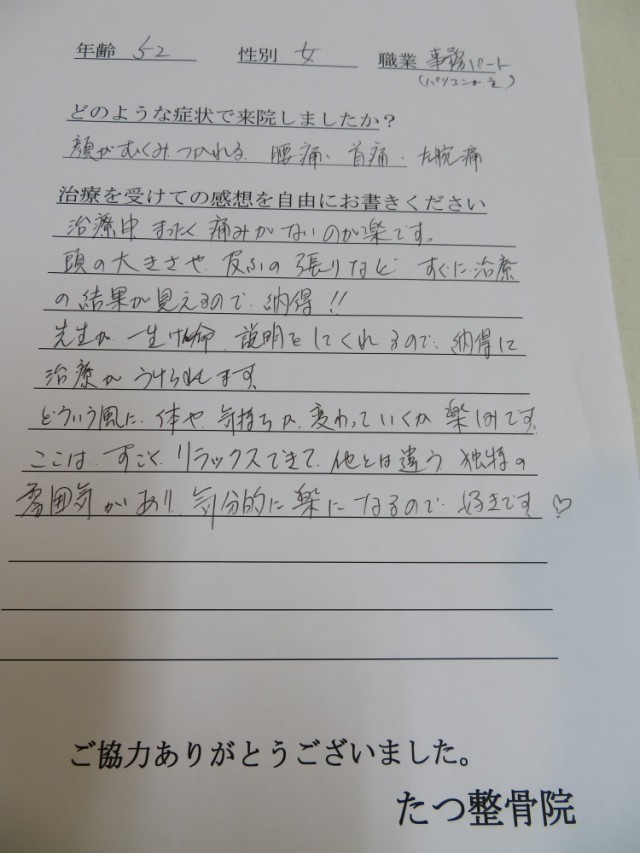 年齢 52 性別 女 職業 事務パート
(パソコン
どのような症状で来院しましたか？
顔がむくみ つかれる、腰痛、首痛、左腕痛
治療を受けての感想を自由にお書きください
治療中 まったく 痛みがないのが楽です。
頭の大きさや、皮ふの張りなど すぐに治療
の結果が見えるので、納得!!
先生が 一生けん命、説明をしてくれるので、納得に
治療がうけられます
どういう風に、体や、気持ちが、変わっていくか 楽しみです。
ここは、すごく、リラックスできて、他とは違う 独特の
雰囲気があり、気分的に楽になるので 好きです♡
ご協力ありがとうございました。
たつ整骨院